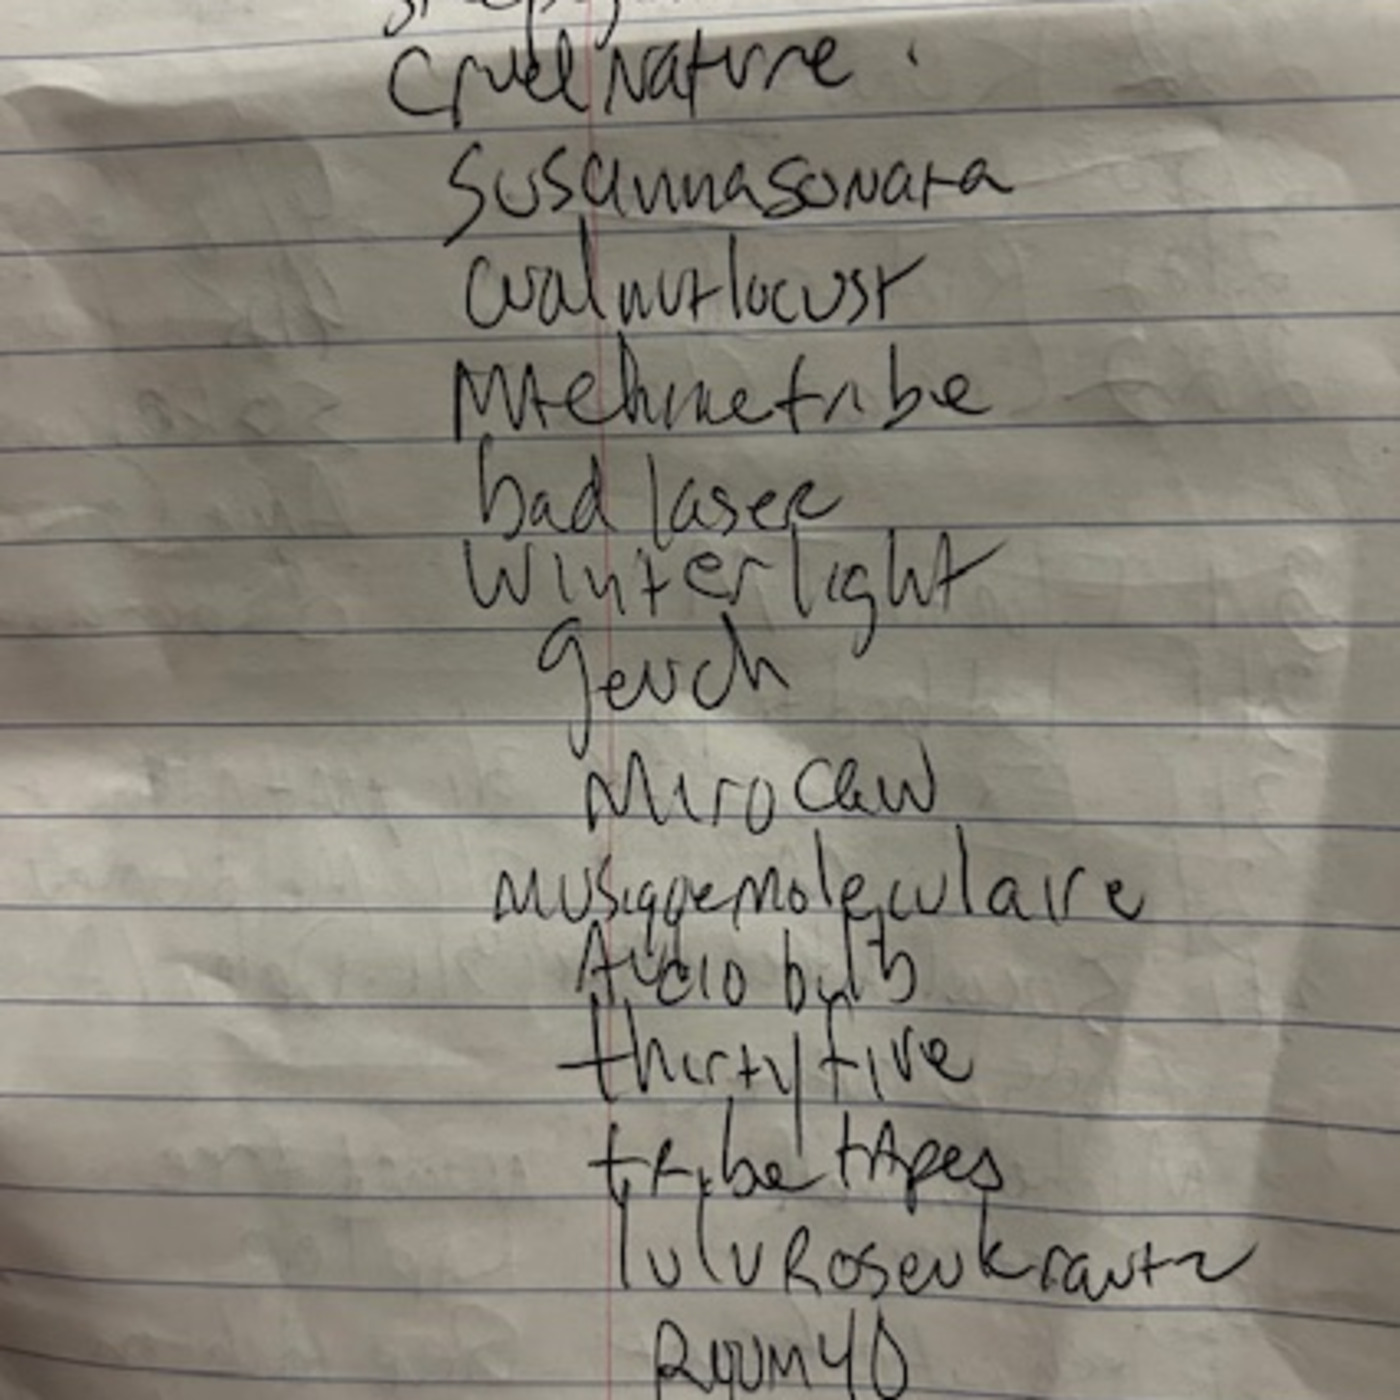 Cruel Nature
Susannasonata
walnutlocust
bad laser
Winter light
gerch
Miro Claw
musiquemoleculaire
Audio bulb
thirtyfive
tribe tApes
lulu Rosenkrantz
Room40